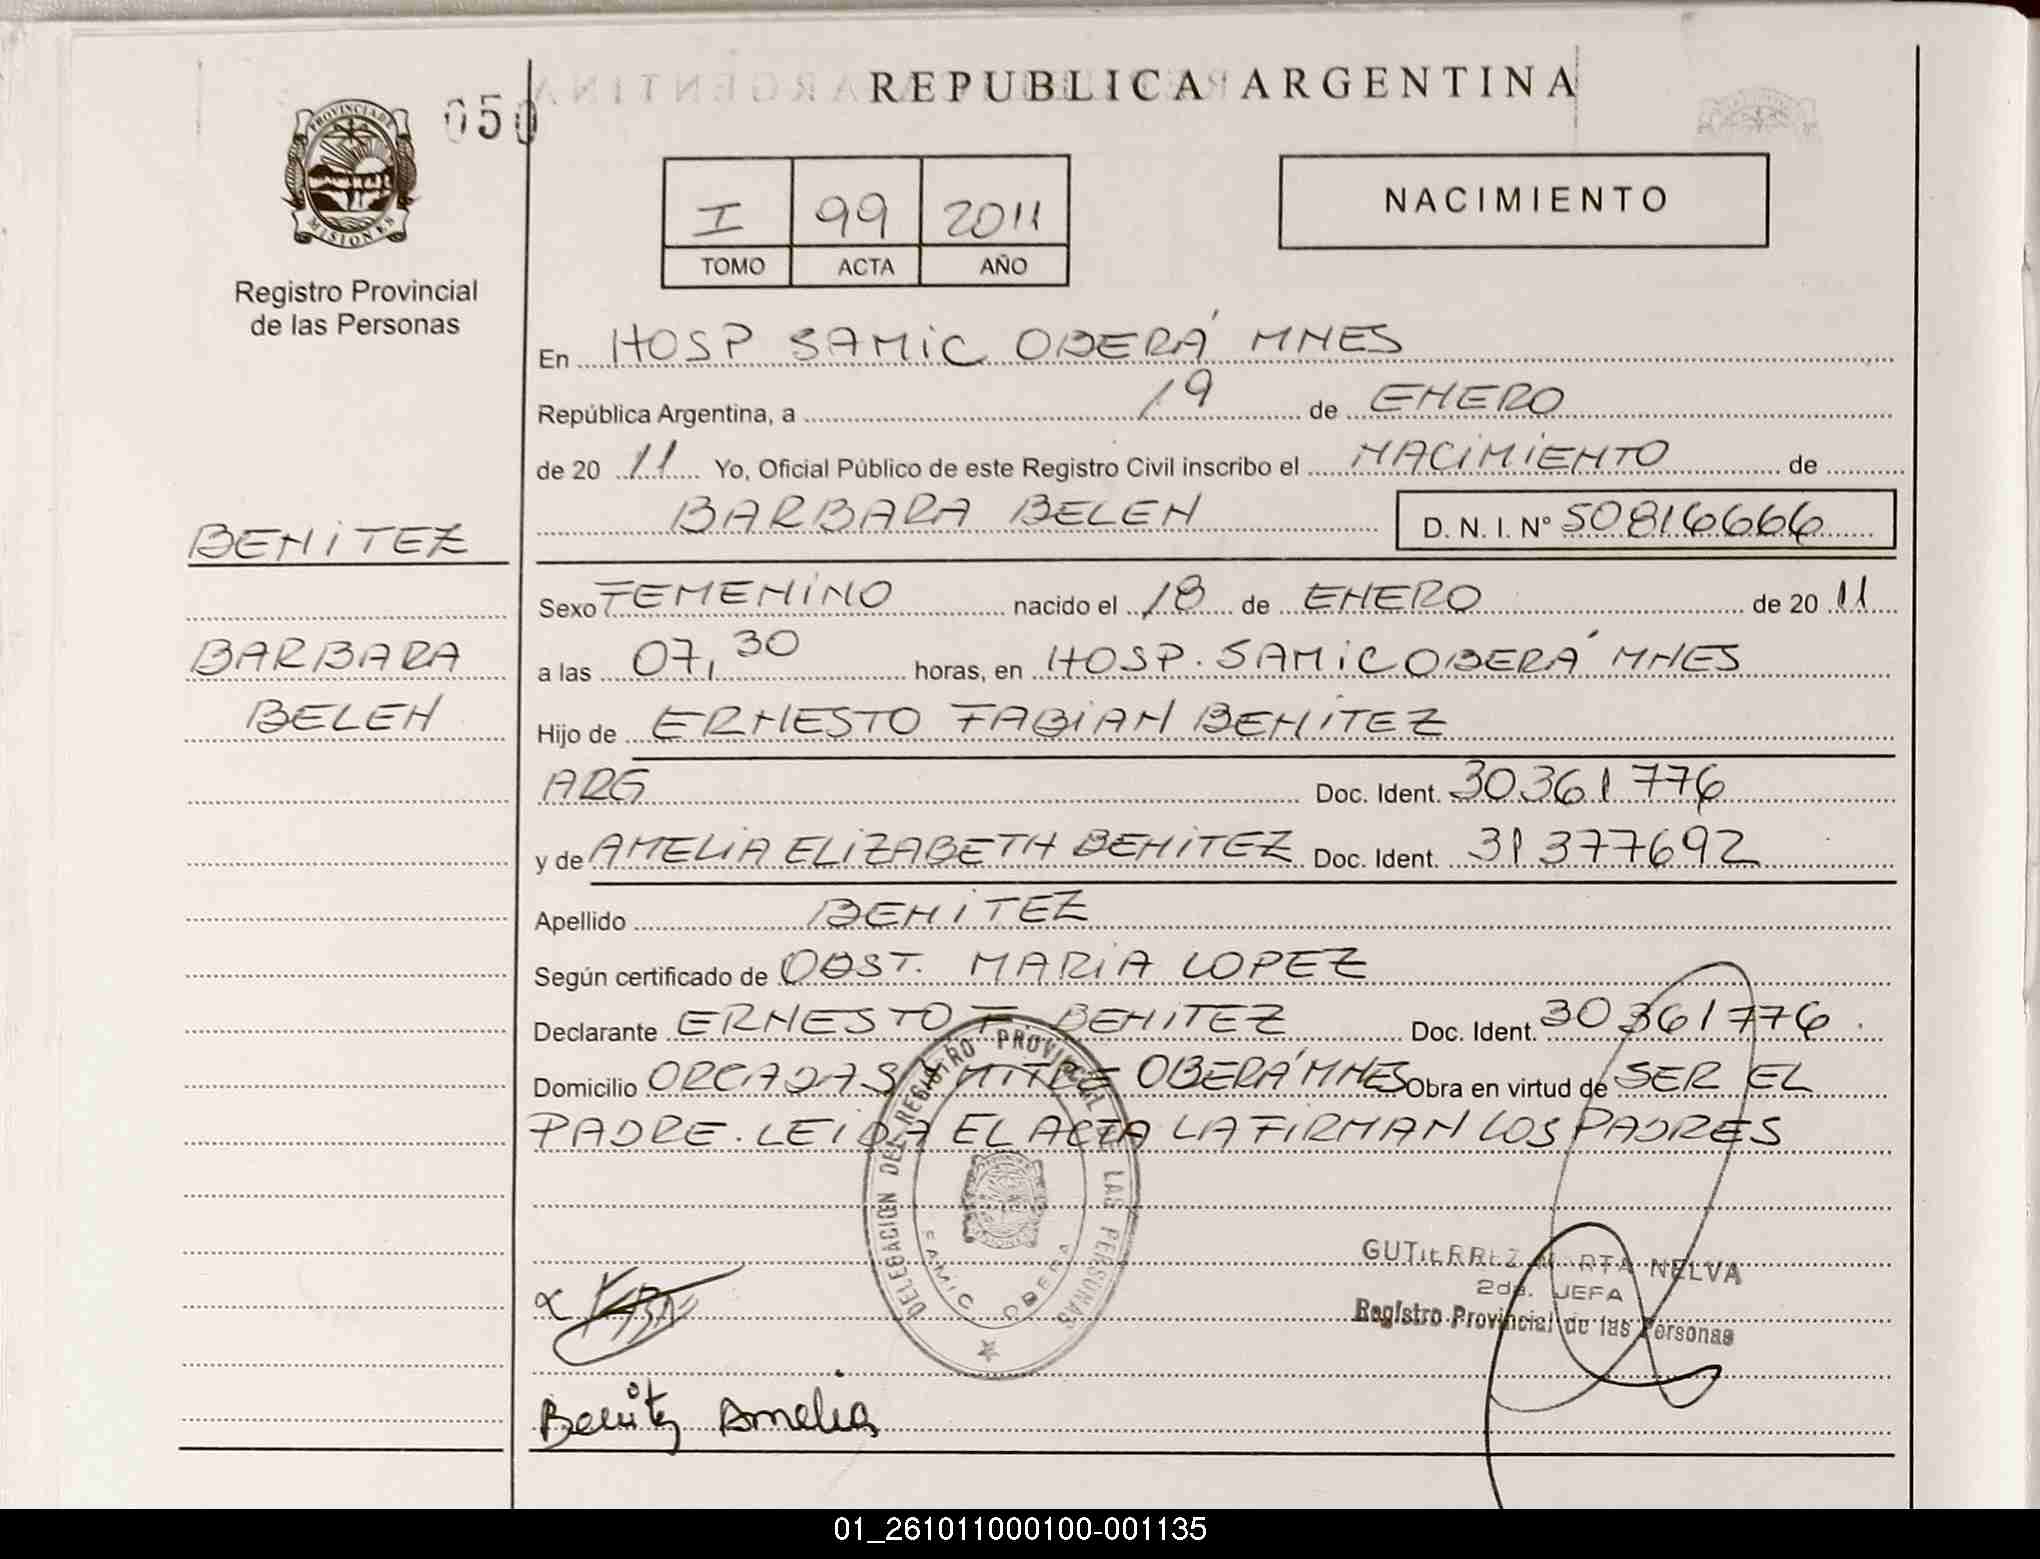 REPUBLICA ARGENTINA
050
PROVINCIA DE
MISIONES
Registro Provincial
de las Personas
I 99 2011
TOMO ACTA AÑO
NACIMIENTO
En HOSP SAMIC OBERÁ MNES
República Argentina, a 19 de ENERO
de 20 11 Yo, Oficial Público de este Registro Civil inscribo el NACIMIENTO de
BARBARA BELEN D. N. I. Nº 50816666
BENITEZ
BARBARA
BELEN
Sexo FEMENINO nacido el 18 de ENERO de 20 11
a las 07,30 horas, en HOSP. SAMIC OBERÁ MNES
Hijo de ERNESTO FABIAN BENITEZ
ARG Doc. Ident. 30361776
y de AMELIA ELIZABETH BENITEZ Doc. Ident. 31377692
Apellido BENITEZ
Según certificado de OBST. MARIA LOPEZ
Declarante ERNESTO F. BENITEZ Doc. Ident. 30361776.
Domicilio ORCADAS Y MITRE OBERÁ MNES Obra en virtud de SER EL
PADRE. LEIDA EL ACTA LA FIRMAN LOS PADRES
DELEGACION DEL REGISTRO PROVINCIAL DE LAS PERSONAS
SAMIC OBERA
GUTIERREZ MARTA NELVA
2da. JEFA
Registro Provincial de las Personas
Benitez Amelia
01_261011000100-001135